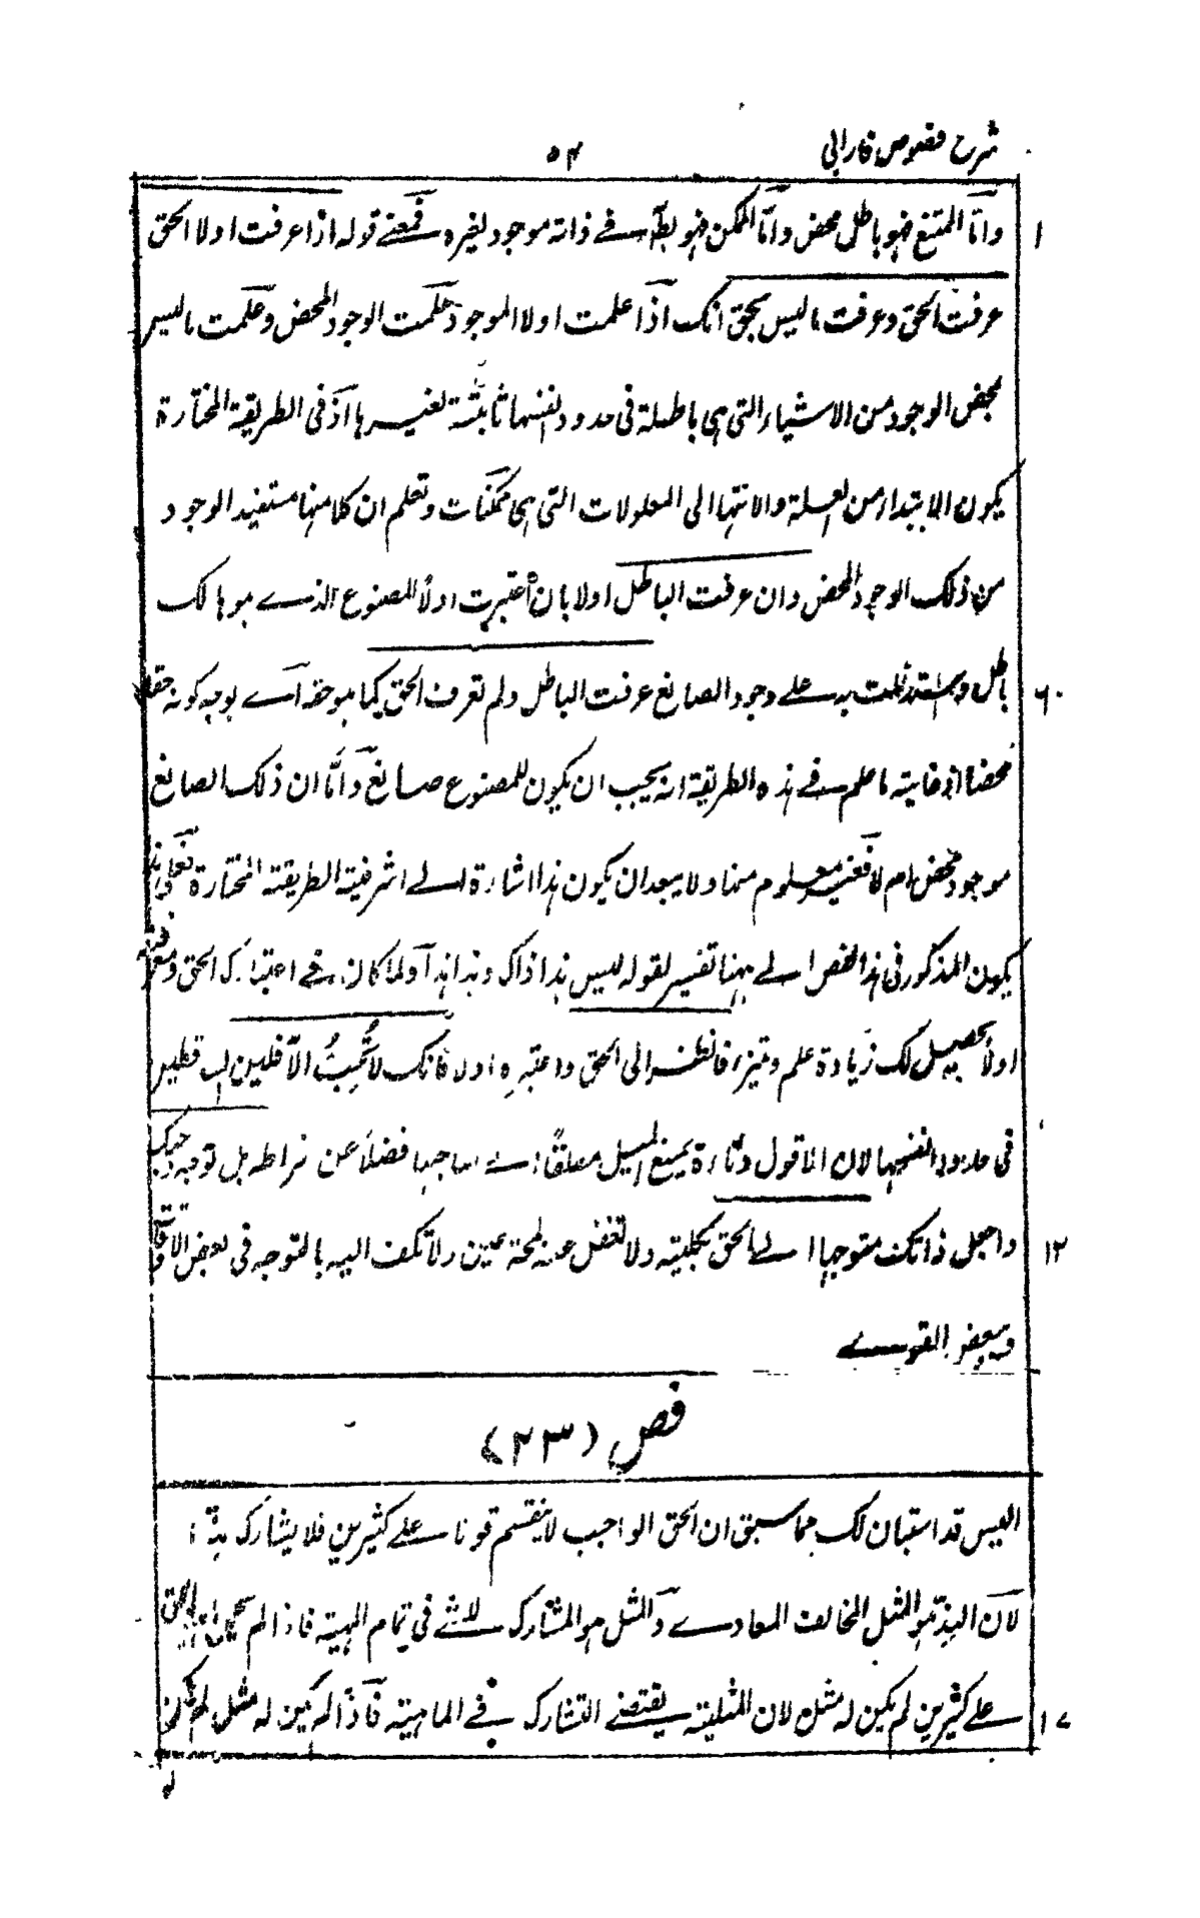 شرح فصوص فارابی
۵۴
۱ واما الممتنع فهو باطل محض واما الممكن فهو باطل في ذاته موجود لغيره فمعنى قوله اذا عرفت اولا الحق
عرفت الحق وعرفت ما ليس بحق انك اذا علمت اولا الموجود علمت الوجود المحض وعلمت ما ليس
بمحض الوجود من الاشياء التي هي باطلة في حدود انفسها ثابتة لغيرها اذ في الطريقة المختارة
يكون الابتداء من العلة والانتهاء الى المعلولات التي هي ممكنات وتعلم ان كلا منها مستفيد الوجود
من ذلك الوجود المحض وان عرفت الباطل اولا بان اعتبرت اولاً المصنوع الذي هو هالك
۶ باطل واستدللت به على وجود الصانع عرفت الباطل ولم تعرف الحق كما هو حقه اى بوجه كونه حقا
محضا اذ غايته ما علم في هذه الطريقة انه يجب ان يكون للمصنوع صانع واما ان ذلك الصانع
موجود محض ام لا فغير معلوم منها ولا يبعد ان يكون هذا اشارة الى اشرفية الطريقة المختارة فعلى هذا
يكون المذكور في هذا الفص الى ههنا تفسير لقوله ليس هذا ذاك وهذا هذا ولما كان في اعتبارك الحق ومعرفته
اولاً يحصل لك زيادة علم وتميز فانظر الى الحق واعتبره اولا فانك لا تُحِبُّ الآفلين
في حدود انفسها لان الافول يمنع الميل مطلقًا الى صاحبها فضلاً عن بل توجه
۱۲ واجعل ذاتك متوجها الى الحق بكليته ولا تغفل عنه لمحة عين ولا تكف اليه بالتوجه في بعض الاوقات
وببعض القوى
فص (۲۳)
اليس قد استبان لك مما سبق ان الحق الواجب لا ينقسم قولا على كثيرين فلا يشارك ندّه
لان الند هو المثل المخالف المعادى والمثل هو المشارك للشئ في تمام المهية فاذا لم يحمل الحق
۱۷ على كثيرين لم يكن له مثل لان المثلية يقتضى التشارك في الماهية فاذا لم يكن له مثل لم يكن
له